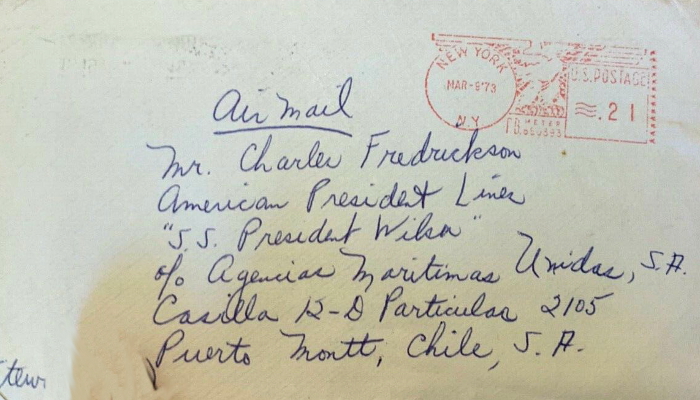 NEW YORK
MAR-8'73
N.Y.
U.S. POSTAGE
.21
P.B. METER
Air Mail
Mr. Charles Fredrickson
American President Lines
"S.S. President Wilson"
c/o Agencias Maritimas Unidas, S.A.
Casilla 12-D Particular 2105
Puerto Montt, Chile, S.A.